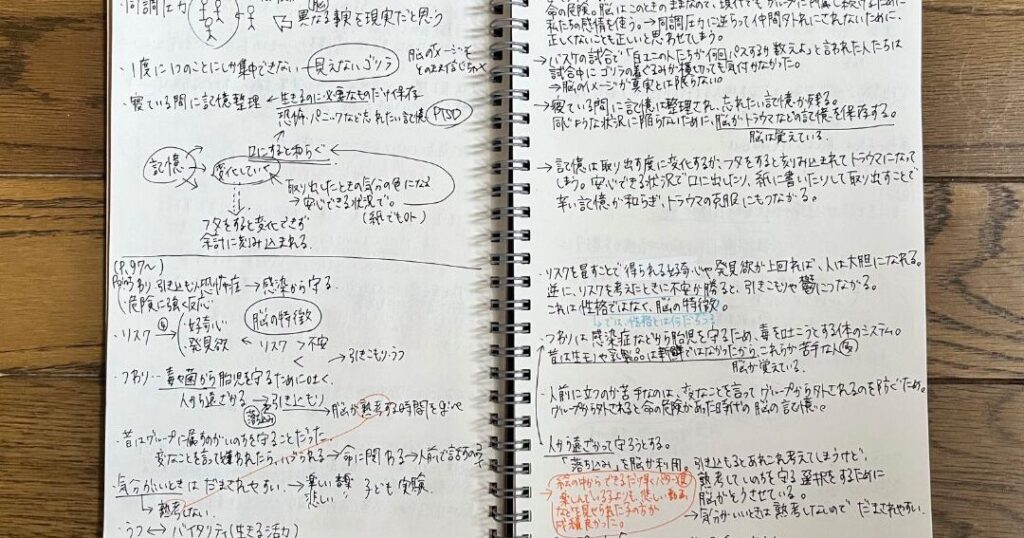 ・同調圧力
脳
異なる事実を現実だと思う
・1度に1つのことにしか集中できない
見えないゴリラ
脳のイメージを
そのまま信じちゃう
・寝ている間に記憶整理 ← 生きるのに必要なものだけ保存
恐怖・パニックなど忘れたい記憶 PTSD
口にすると和らぐ
記憶 → 変化していく
取り出したときの気分の色になる
→ 安心できる状況で。
(紙でもOK)
フタをすると変化できず
余計に刻み込まれる
(P.97〜)
引きこもり 恐怖症 → 感染から守る
危険に強く反応
・リスク
・好奇心
・発見欲
脳の特徴
リスク > 不安
→ 引きこもり・うつ
・つわり… 毒や菌から胎児を守るために吐く。
人から遠ざかる → 引き込もり
落ち込み
→ 脳が熟考する時間を
・昔はグループに属するのがいのちを守ることだった。
変なことを言って嫌われたら、 → 命に関わる → 人前で話すの
・気分がいいときはだまされやすい。 → 楽しい
悲しい
子ども実験
→ 熟考しない
・うつ ←→ バイタリティ(生きる活力)
命の危険。脳はこのときのままなので、現代でもグループに所属し続けるために
私たちの感情を使う。→ 同調圧力に逆らって仲間外れにされないために、
正しくないことも正しいと思わせてしまう。
→ バスケの試合で「白ユニの人たちが何回パスするか数えよ」と言われた人たちは
試合中にゴリラの着ぐるみが横切っても気付かなかった。
→ 脳のイメージが真実とは限らない
→ 寝ている間に記憶は整理され、忘れたい記憶が残る。
同じような状況に陥らないために、脳がトラウマなどの記憶を保存する。
脳は覚えている。
→ 記憶は取り出す度に変化するが、フタをすると刻み込まれてトラウマになって
しまう。安心できる状況で口に出したり、紙に書いたりして取り出すことで
辛い記憶が和らぎ、トラウマの克服にもつながる。
・リスクを冒すことで得られる好奇心や発見欲が上回れば、人は大胆になれる。
逆に、リスクを考えたときに不安が勝ると、引きこもりや鬱につながる。
これは性格ではなく、脳の特徴。
では、性格とは何だろう?
・つわりは感染症などから胎児を守るため、毒を吐こうとする体のシステム。
昔は生モノや乳製品は新鮮ではなかったから、これらが苦手な人
脳が覚えている。
・人前に立つのが苦手なのは、変なことを言ってグループから外されるのを防ぐため。
グループから外されると命の危険があった時代の脳の記憶。
人から遠ざかって守ろうとする。
「落ち込み」を脳が利用。引き込もるとあれこれ考えてしまうけど、
熟考していのちを守る選択をするために
脳がそうさせている。
→ 気分がいいときは熟考しないのでだまされやすい。
楽しんでいるよりも悲しい動画
などを見せられた子の方が
成績良かった。